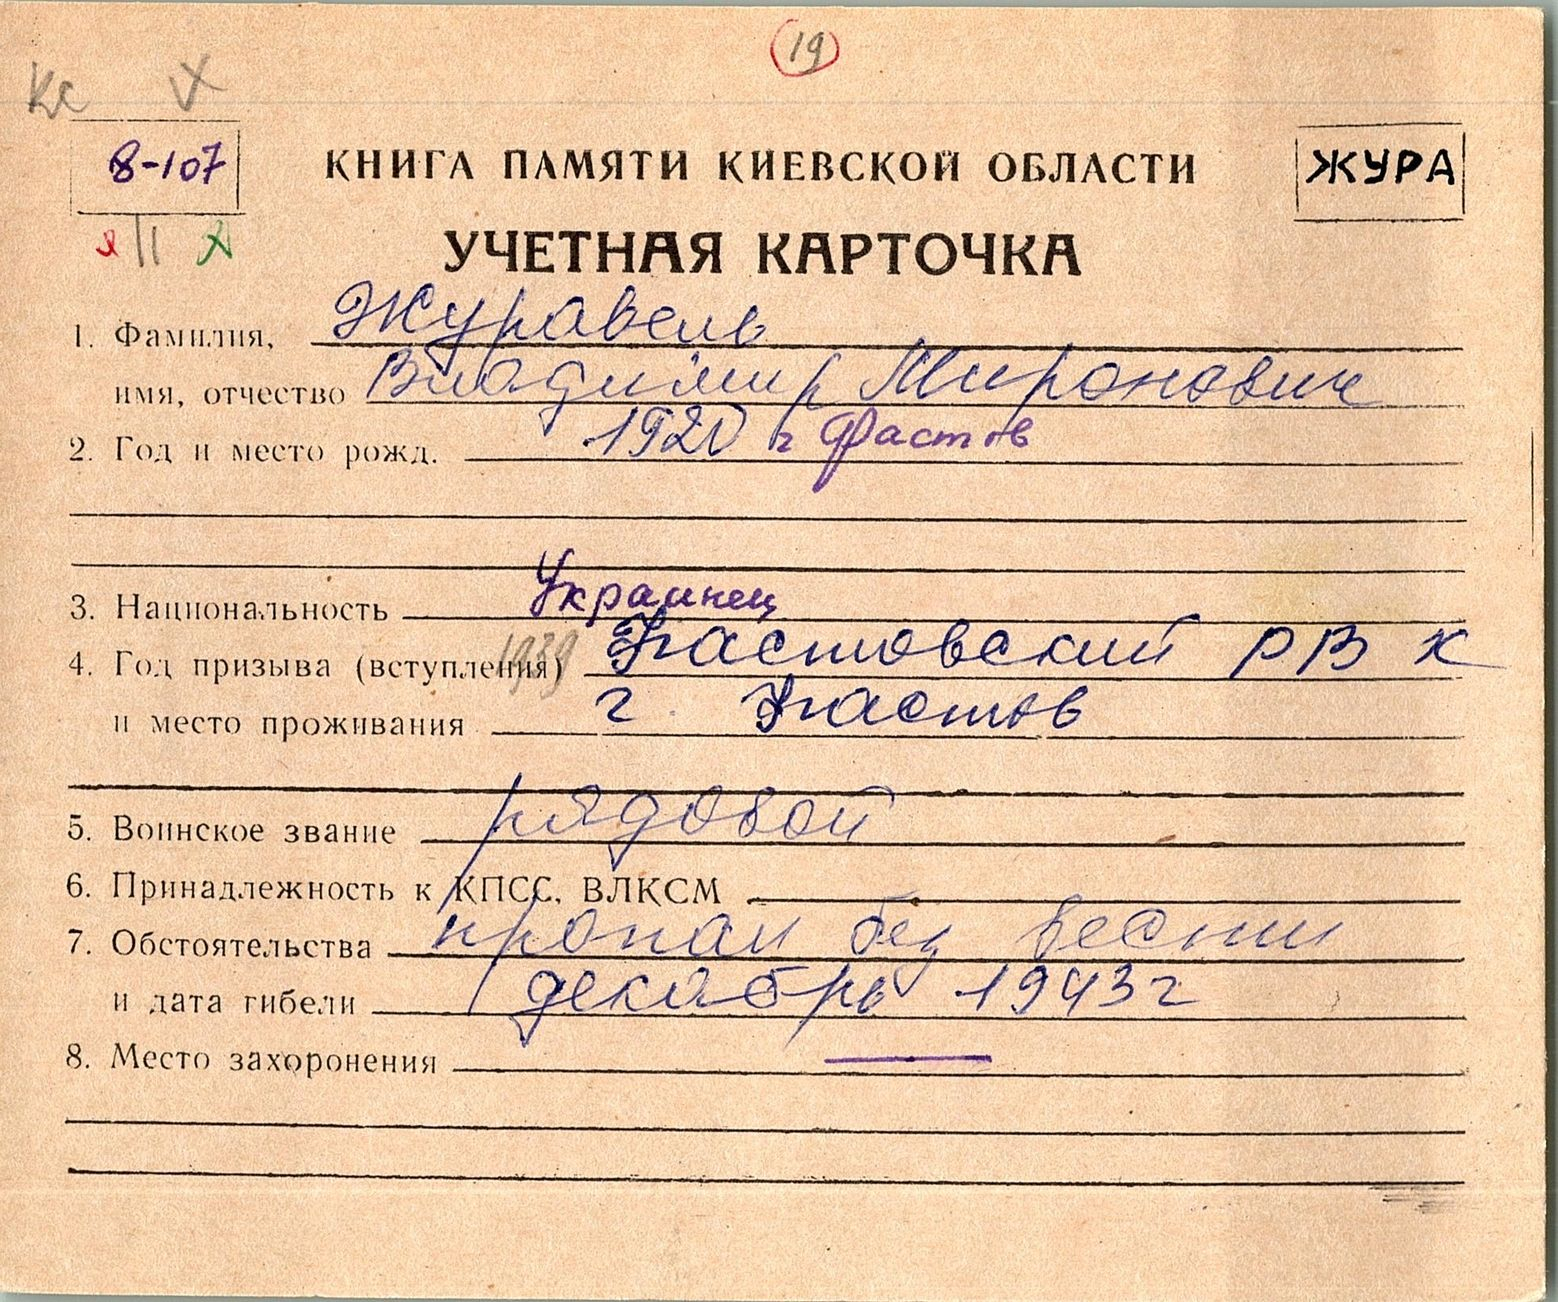 19
Кс
8-107
КНИГА ПАМЯТИ КИЕВСКОЙ ОБЛАСТИ
ЖУРА
УЧЕТНАЯ КАРТОЧКА
1. Фамилия, Журавель
имя, отчество Владимир Миронович
2. Год и место рожд. 1920 г Фастов
3. Национальность Украинец
4. Год призыва (вступления) 1939 Фастовский РВК
и место проживания г. Фастов
5. Воинское звание рядовой
6. Принадлежность к КПСС, ВЛКСМ
7. Обстоятельства пропал без вести
и дата гибели декабрь 1943 г
8. Место захоронения —